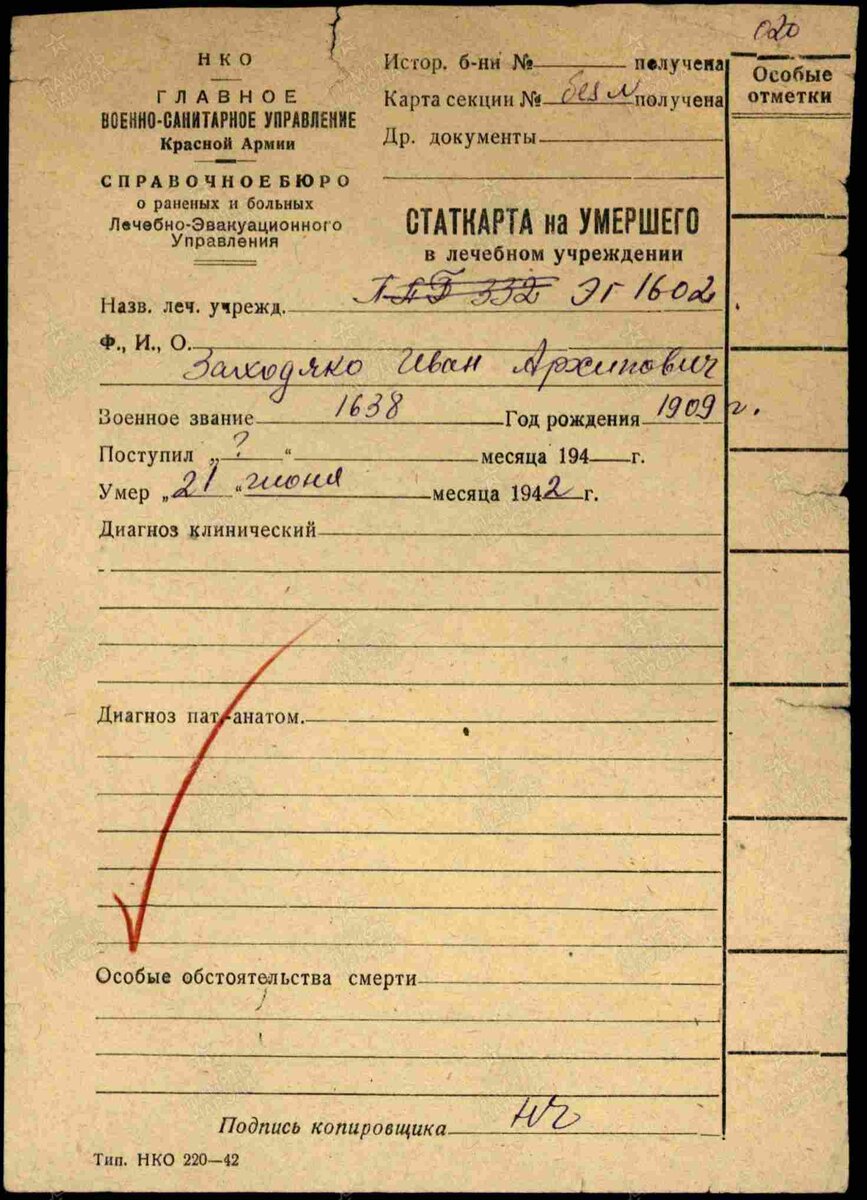 020
НКО
ГЛАВНОЕ
ВОЕННО-САНИТАРНОЕ УПРАВЛЕНИЕ
Красной Армии
СПРАВОЧНОЕ БЮРО
о раненых и больных
Лечебно-Эвакуационного
Управления
Истор. б-ни № получена
Карта секции № без № получена
Др. документы
Особые
отметки
СТАТКАРТА на УМЕРШЕГО
в лечебном учреждении
Назв. леч. учрежд. ППГ 332 ЭГ 1602
Ф., И., О.
Заходяко Иван Архипович
Военное звание 1638 Год рождения 1909 г.
Поступил „ ? “ месяца 194 г.
Умер „21“ июня месяца 1942 г.
Диагноз клинический
Диагноз пат.-анатом.
Особые обстоятельства смерти
Подпись копировщика
Тип. НКО 220—42